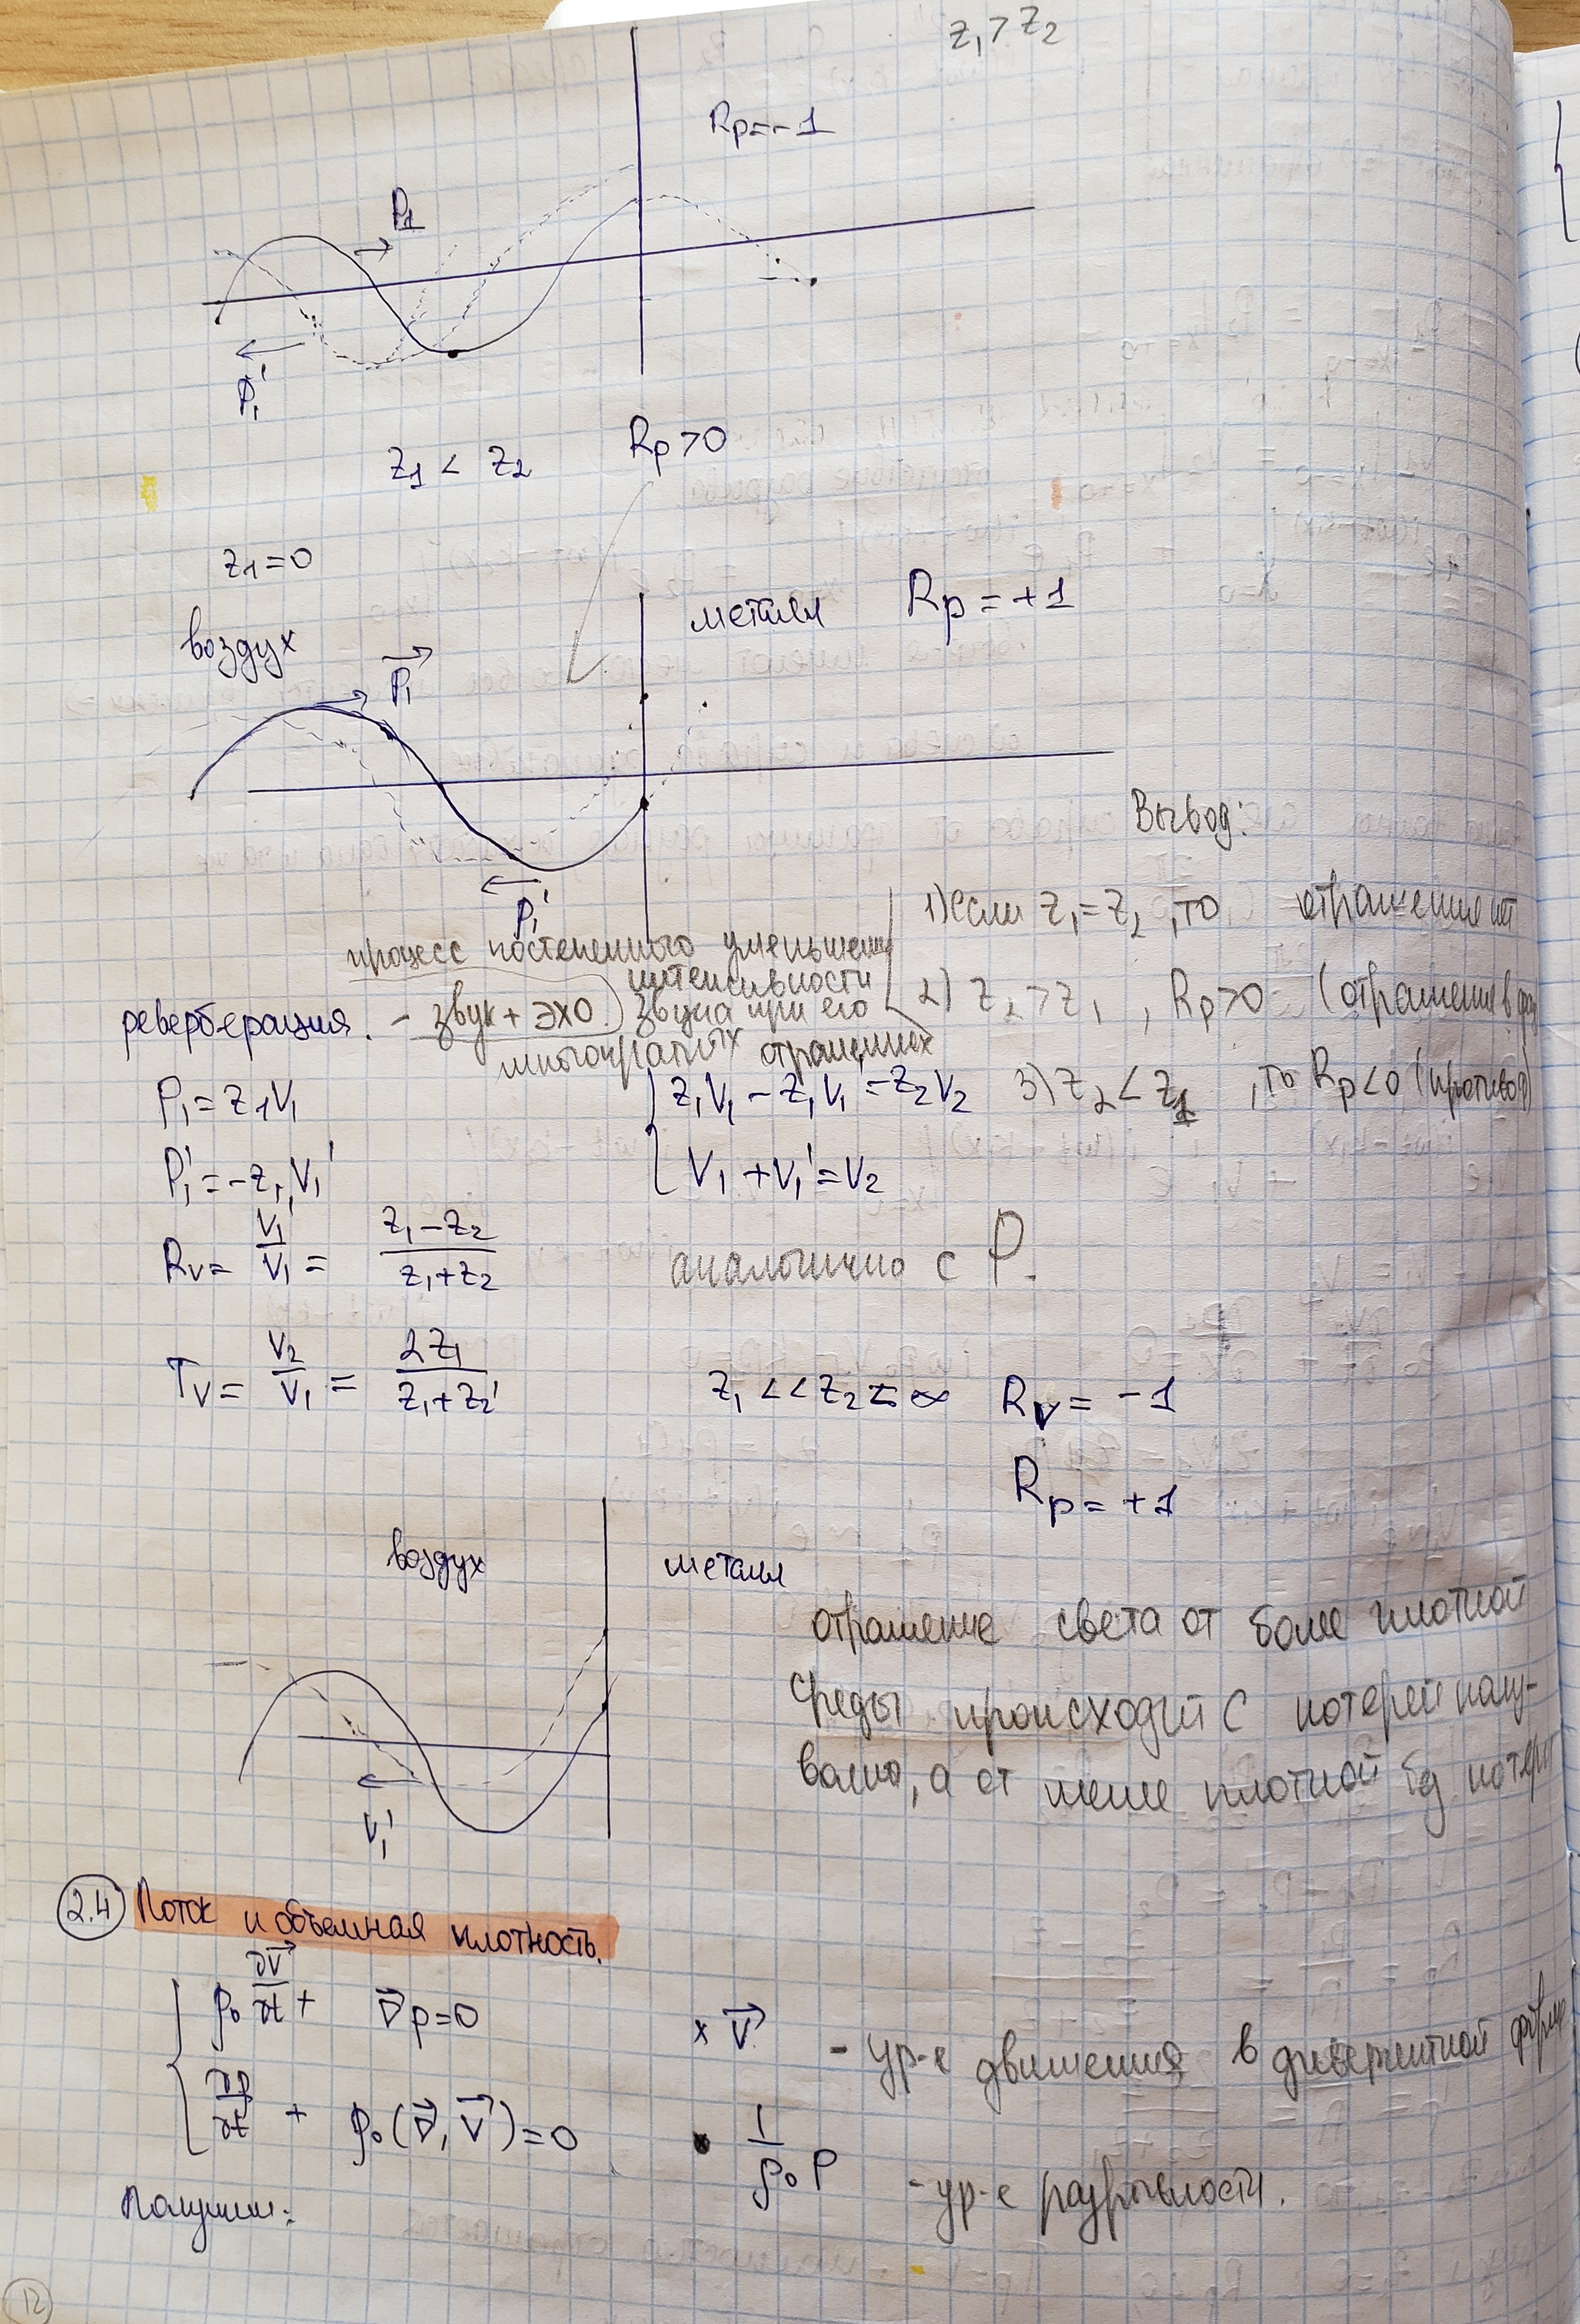 z₁ > z₂
Rp = -1
P₁
P₁'
z₁ < z₂ Rp > 0
z₁ = 0
воздух
металл Rp = +1
P₁
P₁'
Вывод:
1) если z₁ = z₂, то отражения нет
2) z₂ > z₁, Rp > 0 (отражение в фаз
3) z₂ < z₁, то Rp < 0 (противоф)
процесс постепенного уменьшени
интенсивности
реверберация. - звук + эхо.) звука при его
многократных отражениях
P₁ = z₁V₁
P₁' = -z₁V₁'
z₁V₁ - z₁V₁' = z₂V₂
V₁ + V₁' = V₂
Rv = V₁'/V₁ = (z₁ - z₂)/(z₁ + z₂) аналогично с P.
Tv = V₂/V₁ = 2z₁/(z₁ + z₂) z₁ << z₂ ≤ ∞ Rv = -1
Rp = +1
воздух металл
V₁'
отражение света от более плотной
среды происходит с потерей полу-
волно, а от менее плотной бд потери
2.4 Поток и объемная плотность.
ρ₀ ∂V⃗/∂t + ∇⃗p = 0 × V⃗ - ур-е движения в дивергентной форме
∂ρ/∂t + ρ₀(∇⃗, V⃗) = 0 • 1/ρ₀ P - ур-е разрывности.
Получим:
12